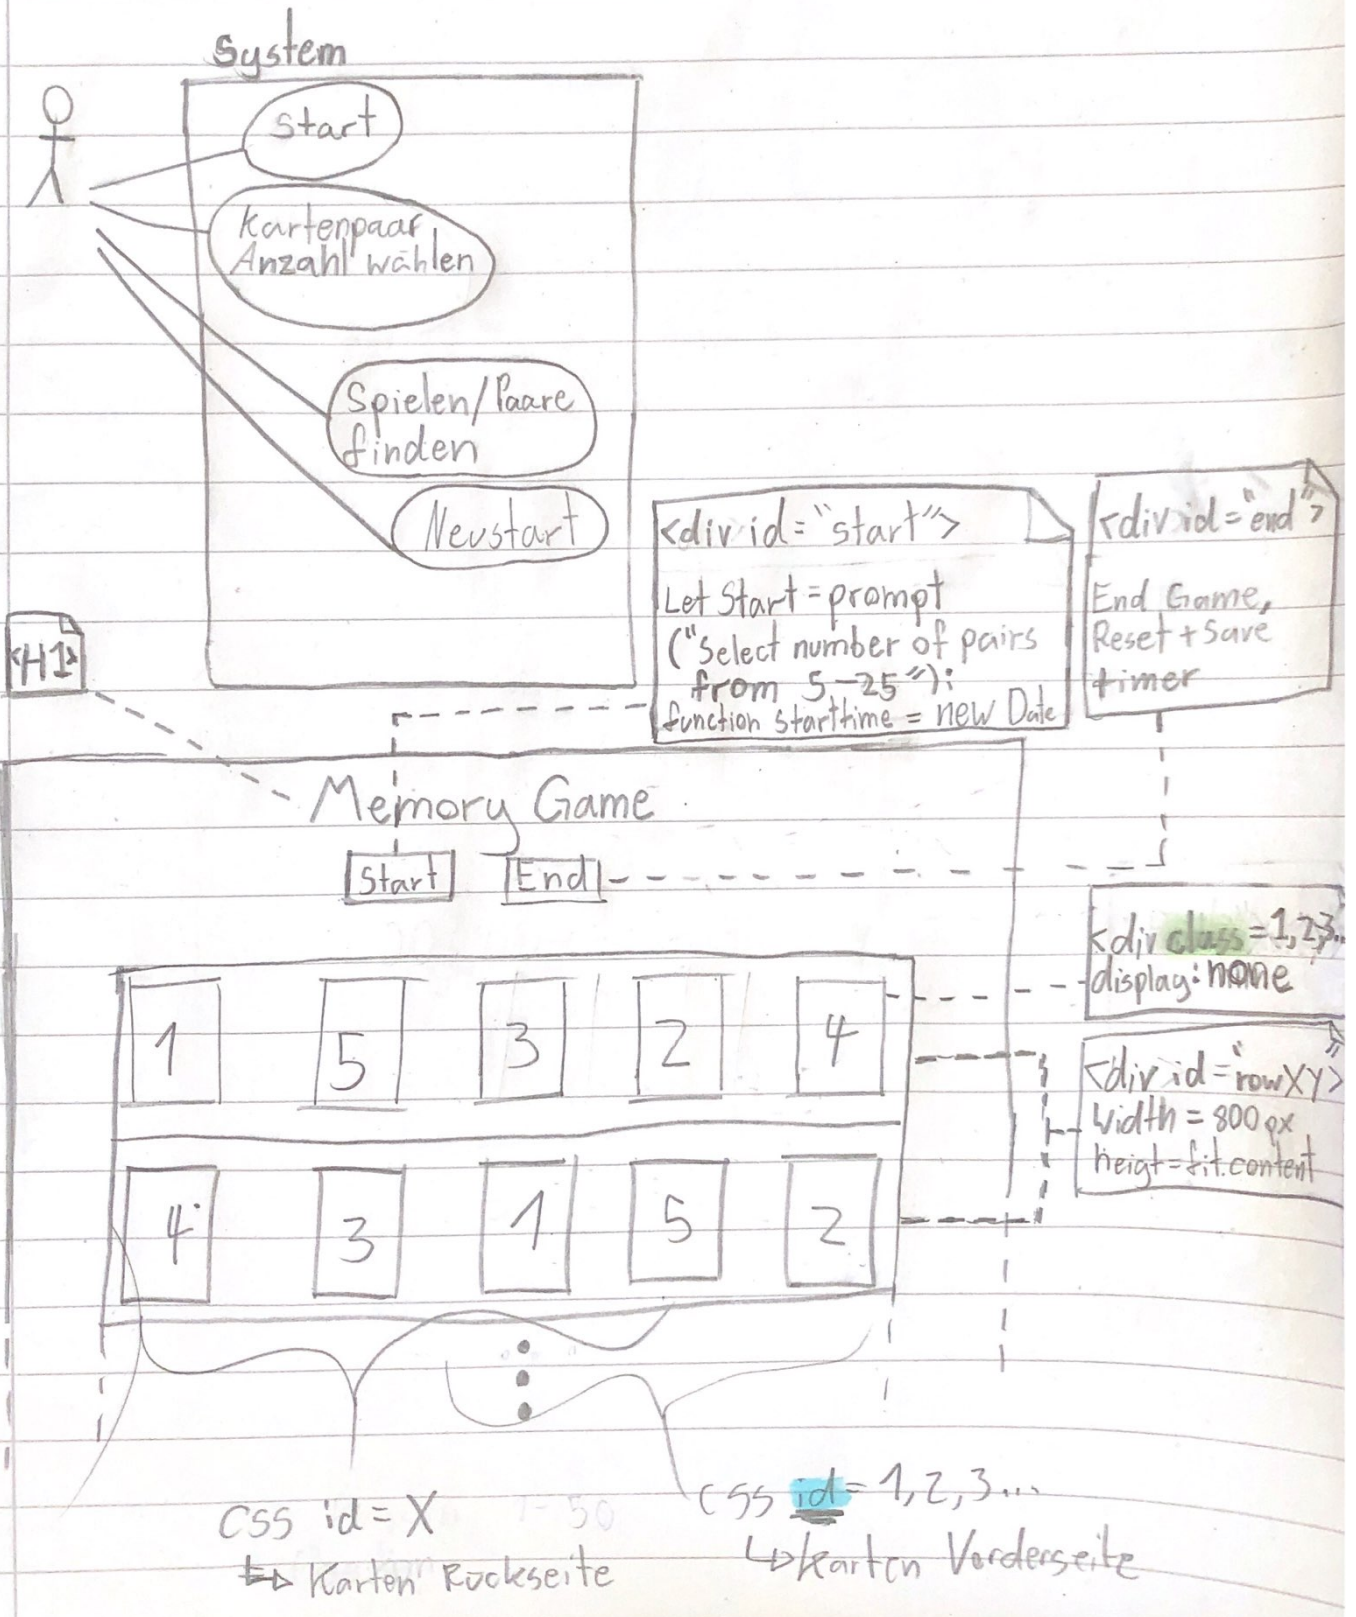 System
Start
Kartenpaar
Anzahl wählen
Spielen/Paare
finden
Neustart
<div id="start">
Let Start = prompt
("Select number of pairs
from 5-25"):
function starttime = new Date
<div id="end">
End Game,
Reset + Save
timer
<H1>
Memory Game
Start
End
<div class = 1,2,3..
display: none
1 5 3 2 4
<div id="rowXY">
Width = 800px
heigt = fit.content
4 3 1 5 2
CSS id = X
↳ Karten Rückseite
CSS id = 1,2,3...
↳ Karten Vorderseite